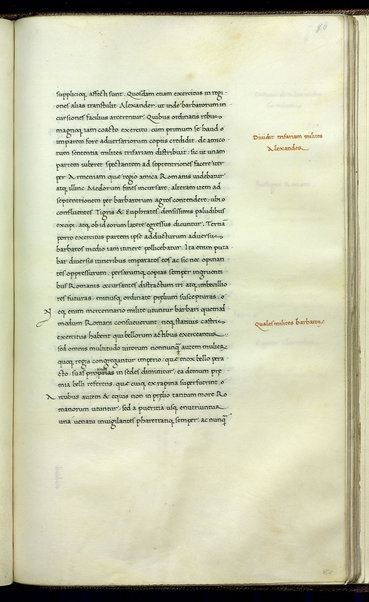 80
supplicioq; affecti sunt. Quosdam etiam exercitus in regi
ones alias transtulit Alexander, ut inde barbarorum in
cursiones facilius arcerentur. Quibus ordinatis rebus
magnoq; iam coacto exercitu, cum primum se haud
imparem fore adversariorum copiis credidit, de amico
rum sententia milites trifariam distribuit. sic ut unam
partem iuberet spectantem ad septentriones facere iter
per Armeniam que regio amica Romanis videbatur
atq; illinc Medorum fines incursare. alteram item ad
septentrionem per barbarorum agros contendere, ubi
confluentes Tigris & Euphrates densissimis paludibus
excipi, atq; ob id eorum latere egressus dicuntur. Tertia
porro exercitus partem ipse adducturum adversus
barbaros medio iam itinere pollicebatur. Ita enim puta
bat diversis itineribus imparatos eos ac sic nec opinan
tes oppressurum. persarumq; copias semper ingruenti
bus Romanis occursantes distractum iri atq; imbecillio
res futuras. minusq; ordinate prelium suscepturas.
eq; enim mercennario milite utuntur barbari quemad
modum Romani consueverunt. neq; stativis castris
exercitus habent qui bellorum actibus exerceantur
sed omnis multitudo virorum nonnunq̃ autem mulier
queq; regis congregantur imperio. que mox bello pera
cto, suas in sedes dimittitur, ea demum pre
mia belli referens, que cuiq; ex rapina superfuerint.
rcubus autem & equis non in prelio tantum more Ro
manorum utuntur, sed a pueritia usq; enutriuntur
una venatu invigilantes pharetramq; semper, ac nunq̃
Dividit trifariam milites
Alexander.
Quales milites barbaris.